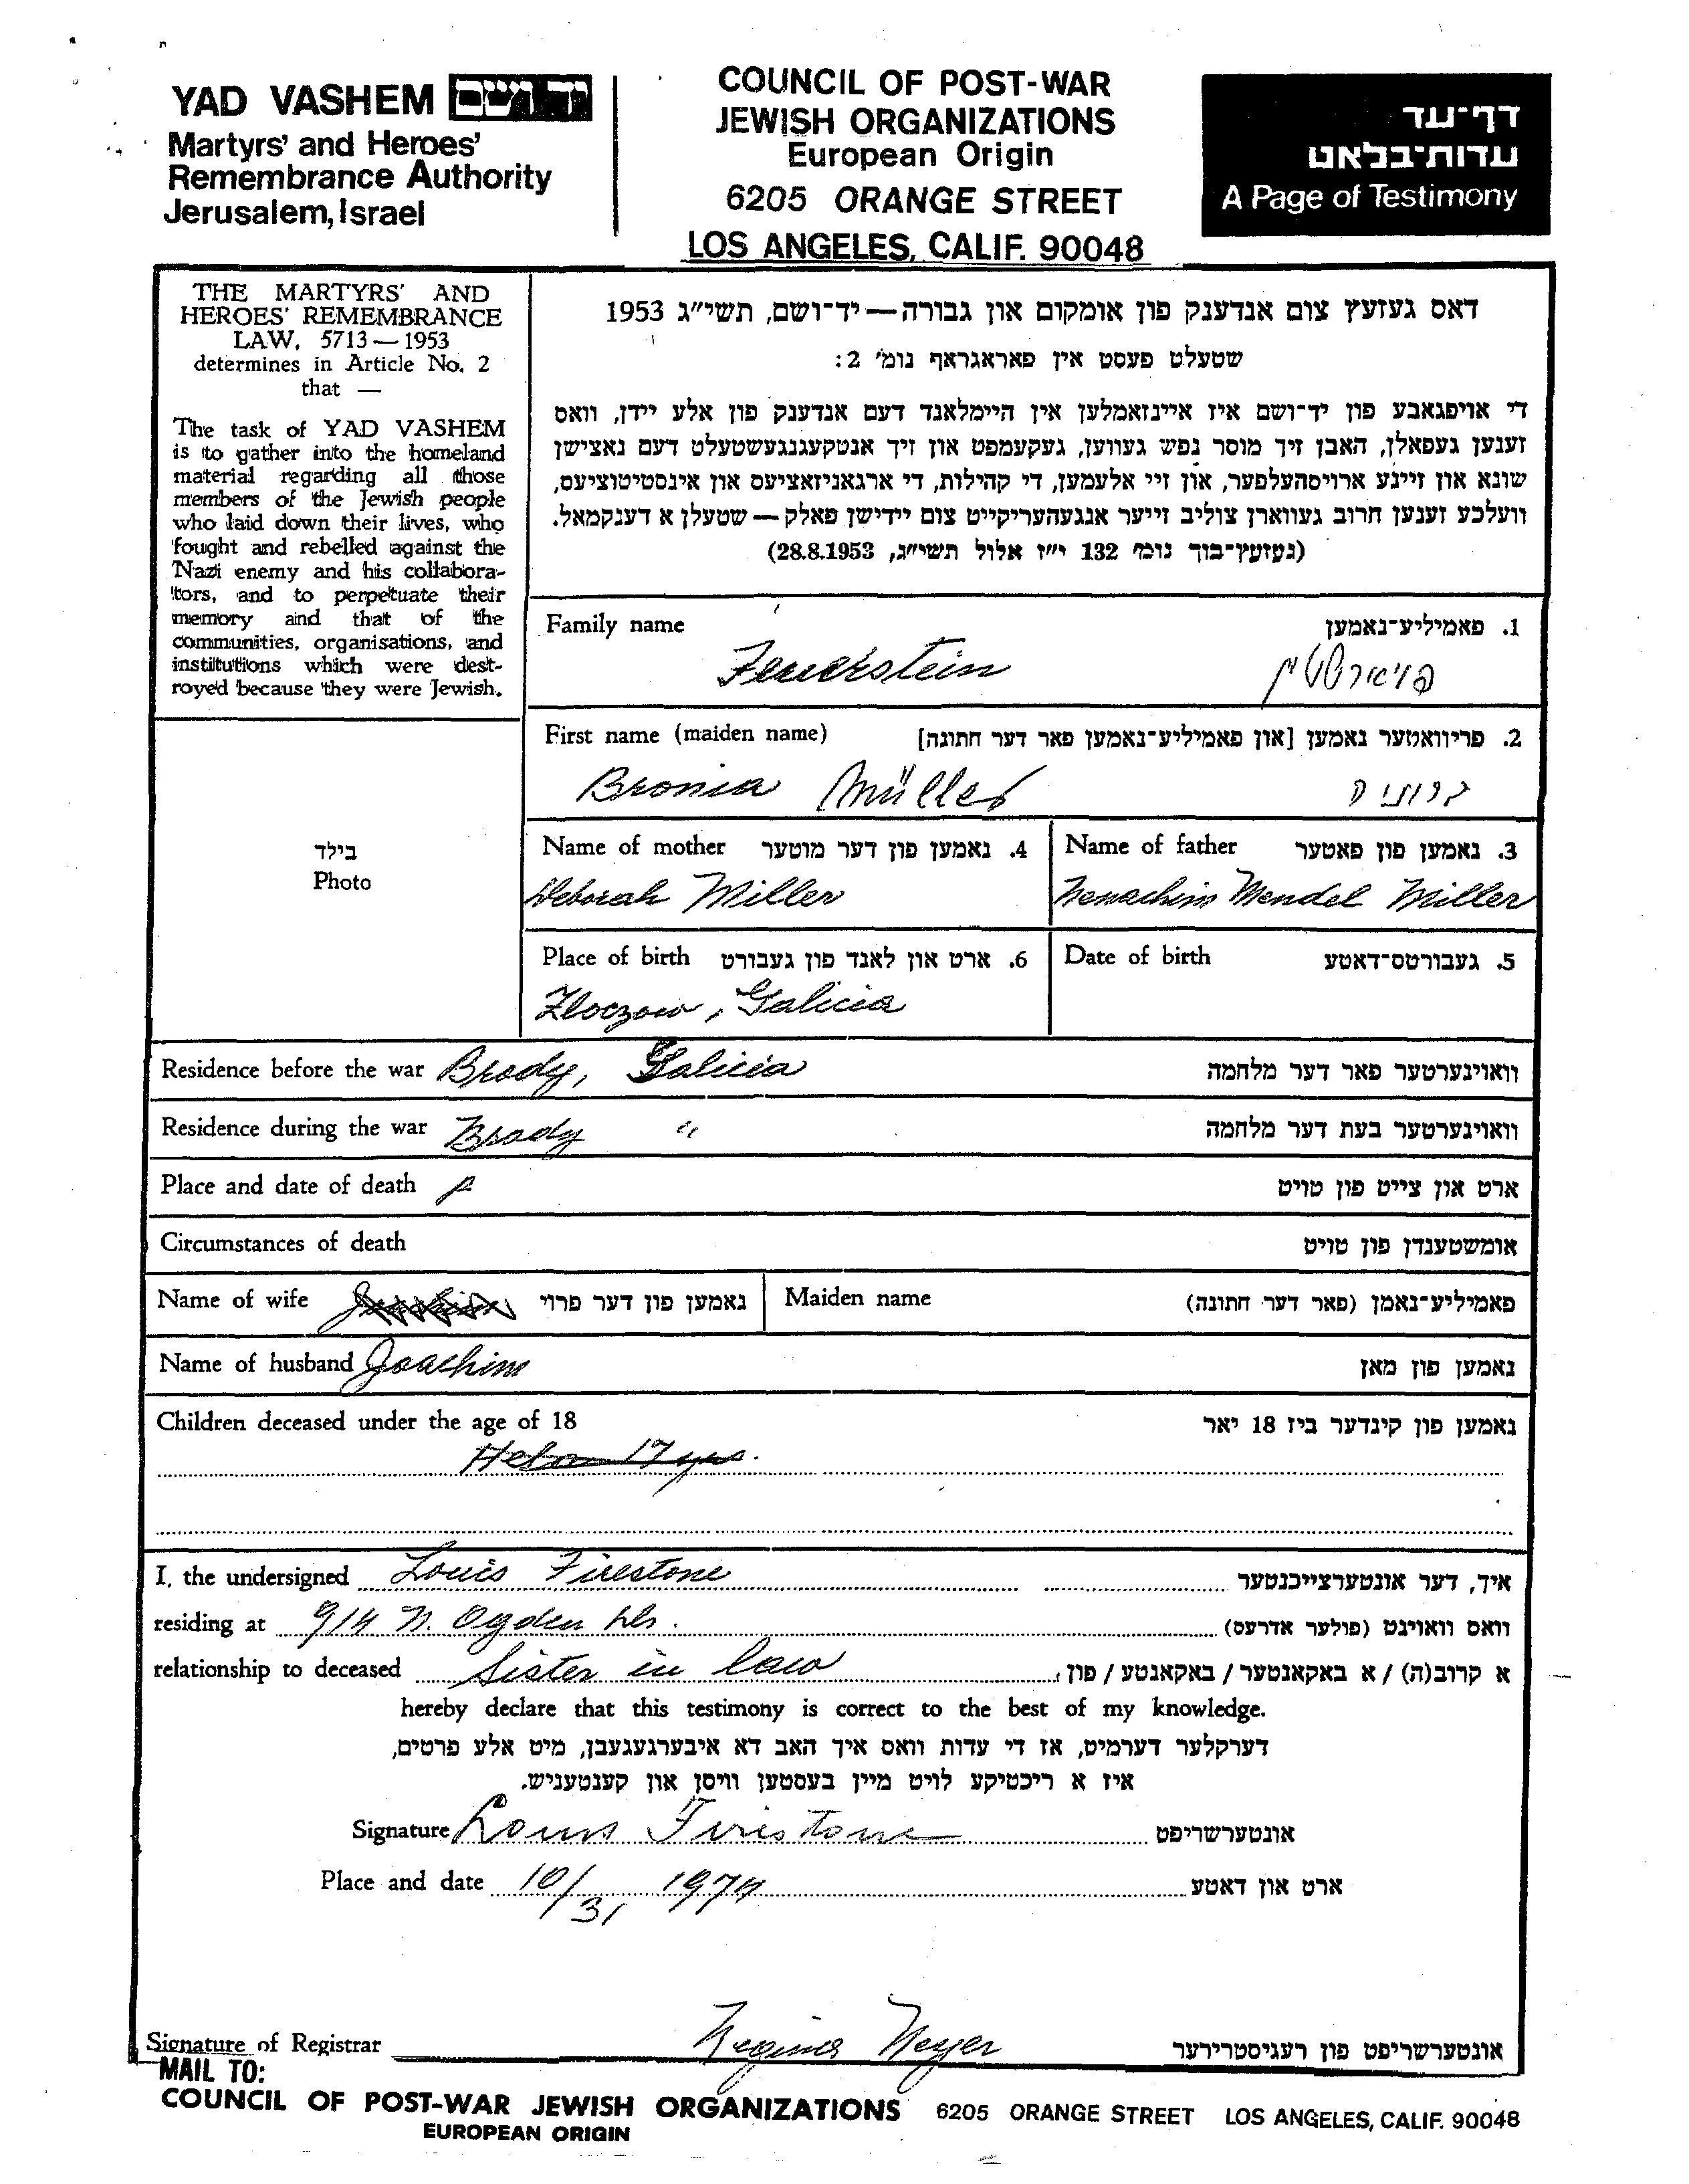 YAD VASHEM יד ושם
Martyrs' and Heroes'
Remembrance Authority
Jerusalem, Israel
COUNCIL OF POST-WAR
JEWISH ORGANIZATIONS
European Origin
6205 ORANGE STREET
LOS ANGELES, CALIF. 90048
דף-עד
עדות-בלאט
A Page of Testimony
THE MARTYRS' AND
HEROES' REMEMBRANCE
LAW, 5713—1953
determines in Article No. 2
that —
The task of YAD VASHEM
is to gather into the homeland
material regarding all those
members of the Jewish people
who laid down their lives, who
fought and rebelled against the
Nazi enemy and his collabora-
tors, and to perpetuate their
memory and that of the
communities, organisations, and
institutions which were dest-
royed because they were Jewish.
דאס געזעץ צום אנדענק פון אומקום און גבורה — יד-ושם, תשי"ג 1953
שטעלט פעסט אין פאראגראף נומ' 2:
די אויפגאבע פון יד-ושם איז איינזאמלען אין היימלאנד דעם אנדענק פון אלע יידן, וואס
זענען געפאלן, האבן זיך מוסר נפש געווען, געקעמפט און זיך אנטקעגנגעשטעלט דעם נאצישן
שונא און זיינע ארויסהעלפער, און זיי אלעמען, די קהילות, די ארגאניזאציעס און אינסטיטוציעס,
וועלכע זענען חרוב געווארן צוליב זייער אנגעהעריקייט צום יידישן פאלק — שטעלן א דענקמאל.
(געזעץ-בוך נומ' 132 י"ז אלול תשי"ג, 28.8.1953)
Family name 1. פאמיליע-נאמען
Feuerstein פויארשטיין
First name (maiden name) 2. פריוואטער נאמען [און פאמיליע-נאמען פאר דער חתונה]
Bronia Müller ברוניה
בילד
Photo
Name of mother 4. נאמען פון דער מוטער
Deborah Miller
Name of father 3. נאמען פון פאטער
Menachim Mendel Miller
Place of birth 6. ארט און לאנד פון געבורט
Zloczow, Galicia
Date of birth 5. געבורטס-דאטע
Residence before the war Brody, Galicia וואוינערטער פאר דער מלחמה
Residence during the war Brody " וואוינערטער בעת דער מלחמה
Place and date of death ארט און צייט פון טויט
Circumstances of death אומשטענדן פון טויט
Name of wife נאמען פון דער פרוי Maiden name פאמיליע-נאמן (פאר דער חתונה)
Name of husband Joachim נאמען פון מאן
Children deceased under the age of 18 נאמען פון קינדער ביז 18 יאר
I, the undersigned Louis Firestone איך, דער אונטערצייכנטער
residing at 914 N. Ogden Dr. וואס וואוינט (פולער אדרעס)
relationship to deceased Sister in law א קרוב(ה) / א באקאנטער / באקאנטע / פון,
hereby declare that this testimony is correct to the best of my knowledge.
דערקלער דערמיט, אז די עדות וואס איך האב דא איבערגעגעבן, מיט אלע פרטים,
איז א ריכטיקע לויט מיין בעסטען וויסן און קענטעניש.
Signature Louis Firestone אונטערשריפט
Place and date 10/31 1974 ארט און דאטע
Signature of Registrar Regina Meyer אונטערשריפט פון רעגיסטרירער
MAIL TO:
COUNCIL OF POST-WAR JEWISH ORGANIZATIONS 6205 ORANGE STREET LOS ANGELES, CALIF. 90048
EUROPEAN ORIGIN